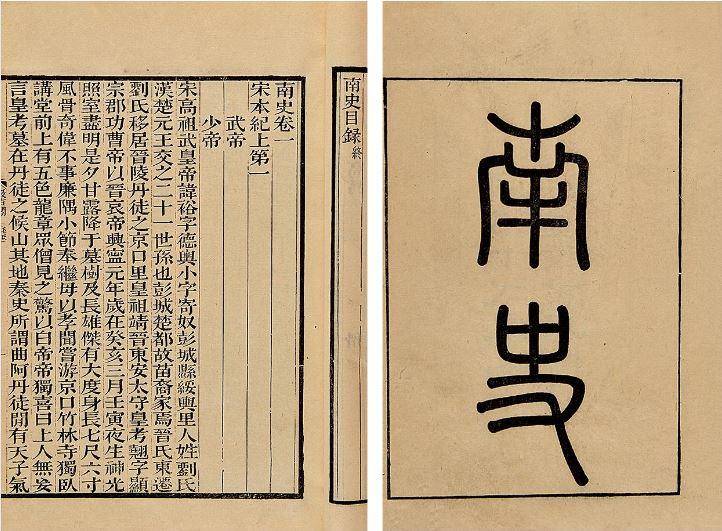 南史
南史目錄 終
南史卷一
宋本紀上第一
武帝
少帝
宋高祖武皇帝諱裕字德輿小字寄奴彭城縣綏輿里人姓劉氏
漢楚元王交之二十一世孫也彭城楚都故苗裔家焉晉氏東遷
劉氏移居晉陵丹徒之京口里皇祖靖晉東安太守皇考翹字顯
宗郡功曹帝以晉哀帝興寧元年歲在癸亥三月壬寅夜生神光
照室盡明是夕甘露降于墓樹及長雄傑有大度身長七尺六寸
風骨奇偉不事廉隅小節奉繼母以孝聞嘗游京口竹林寺獨臥
講堂前上有五色龍章眾僧見之驚以白帝帝獨喜曰上人無妄
言皇考墓在丹徒之候山其地秦史所謂曲阿丹徒間有天子氣